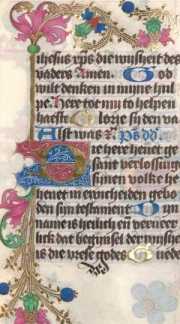 ihesus xps die wijsheit des
vaders Amen. God
wilt denken in mijne hul
pe. here toe my to helpen
haeste Glorie si den va
Als t was Ps dd
e here heuet ge
sant verlossinge
sinen volke he
heuet in ewicheden gebo
den syn testament
nam is heilich en verueer
lick dat beginsel der wijsh
is die vrese godes